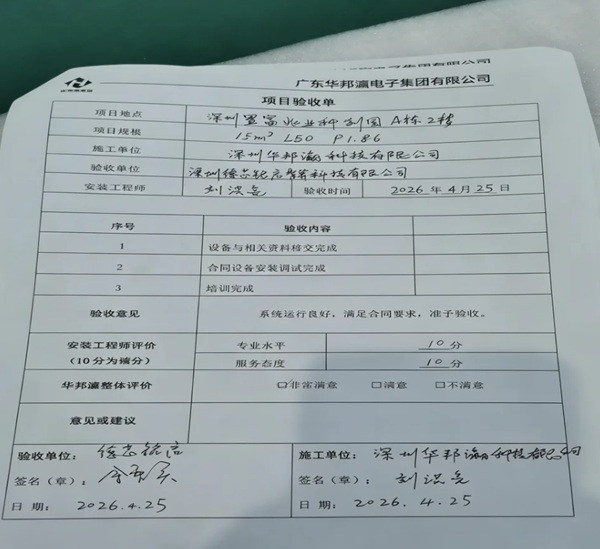 广东华邦瀛电子集团有限公司
项目验收单
项目地点 深圳置富兆业科创园 A栋2楼
项目规模 15m² L50 P1.86
施工单位 深圳华邦瀛科技有限公司
验收单位 科技有限公司
安装工程师 刘洪亮 验收时间 2026 年 4 月 25 日
序号 验收内容
1 设备与相关资料移交完成
2 合同设备安装调试完成
3 培训完成
验收意见 系统运行良好,满足合同要求,准予验收。
安装工程师评价 专业水平 10 分
(10分为满分) 服务态度 10 分
华邦瀛整体评价 □非常满意 □满意 □不满意
意见或建议
验收单位: 施工单位: 深圳华邦瀛科技有限公司
签名(章): 签名(章): 刘洪亮
日 期: 2026.4.25 日 期: 2026. 4. 25